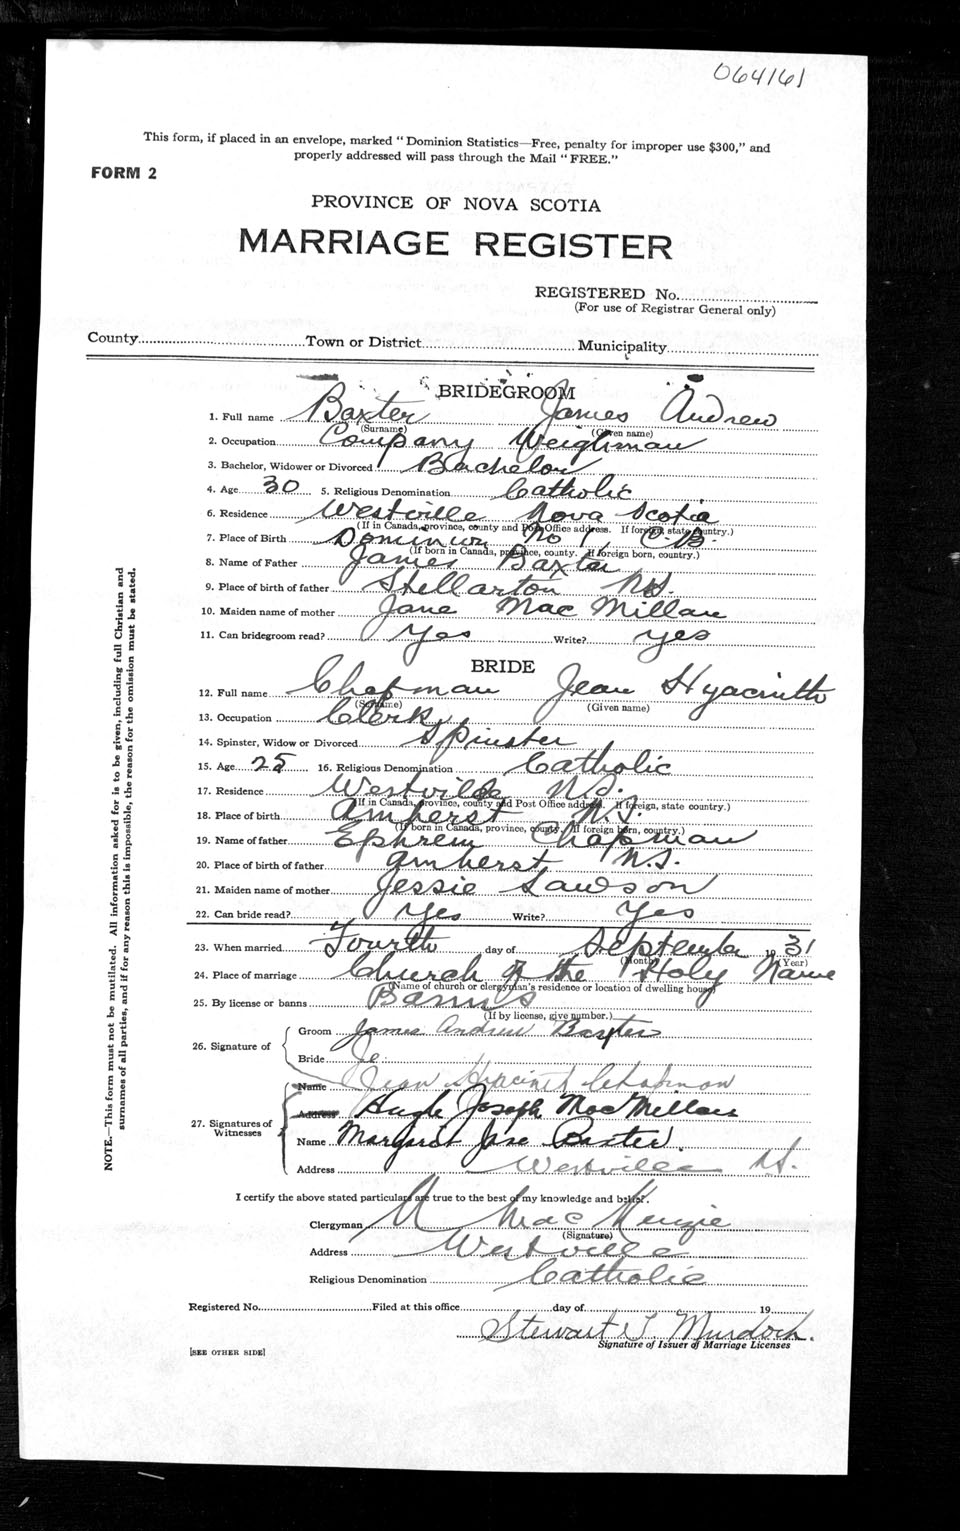 064161
This form, if placed in an envelope, marked "Dominion Statistics—Free, penalty for improper use $300," and
properly addressed will pass through the Mail "FREE."
FORM 2
PROVINCE OF NOVA SCOTIA
MARRIAGE REGISTER
REGISTERED No.
(For use of Registrar General only)
County Town or District Municipality
BRIDEGROOM
1. Full name Baxter James Andrew
(Surname) (Given name)
2. Occupation Company Weighman
3. Bachelor, Widower or Divorced Bachelor
4. Age 30 5. Religious Denomination Catholic
6. Residence Westville Nova Scotia
(If in Canada, province, county and Post Office address. If foreign, state country.)
7. Place of Birth Dominion No 1, C.B.
(If born in Canada, province, county. If foreign born, country.)
8. Name of Father James Baxter
9. Place of birth of father Stellarton N.S.
10. Maiden name of mother Jane MacMillan
11. Can bridegroom read? Yes Write? yes
BRIDE
12. Full name Chapman Jean Hyacinth
(Surname) (Given name)
13. Occupation Clerk
14. Spinster, Widow or Divorced Spinster
15. Age 25 16. Religious Denomination Catholic
17. Residence Westville N.S.
(If in Canada, province, county and Post Office address. If foreign, state country.)
18. Place of birth Amherst N.S.
(If born in Canada, province, county. If foreign born, country.)
19. Name of father Ephrem Chapman
20. Place of birth of father Amherst N.S.
21. Maiden name of mother Jessie Lawson
22. Can bride read? Yes Write? Yes
23. When married Fourth day of September 1931
(Month) (Year)
24. Place of marriage Church of the Holy Name
(Name of church or clergyman's residence or location of dwelling house)
25. By license or banns Banns
(If by license, give number.)
26. Signature of
Groom James Andrew Baxter
Bride Je
Name Jean Hyacinth Chapman
27. Signatures of Witnesses
Address Hugh Joseph MacMillan
Name Margaret Jane Baxter
Address Westville N.S.
I certify the above stated particulars are true to the best of my knowledge and belief.
Clergyman A MacKenzie
(Signature)
Address Westville
Religious Denomination Catholic
Registered No. Filed at this office day of 19
Stewart T. Murdoch.
Signature of Issuer of Marriage Licenses
[SEE OTHER SIDE]
NOTE.—This form must not be mutilated. All information asked for is to be given, including full Christian and
surnames of all parties, and if for any reason this is impossible, the reason for the omission must be stated.